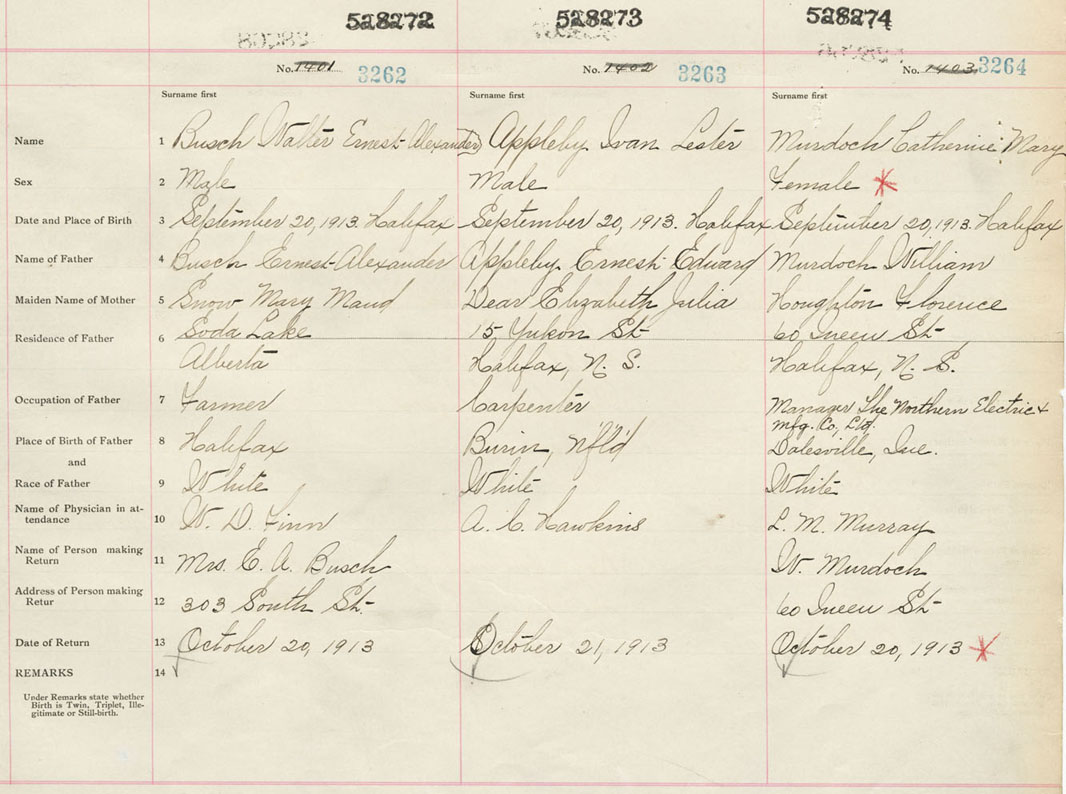 528272 528273 528274
No. 1401 3262 No. 1402 3263 No. 1403 3264
Surname first Surname first Surname first
Name 1 Busch Walter Ernest Alexander Appleby Ivan Lester Murdoch Catherine Mary
Sex 2 Male Male Female
Date and Place of Birth 3 September 20, 1913. Halifax September 20, 1913. Halifax September 20, 1913. Halifax
Name of Father 4 Busch Ernest Alexander Appleby Ernest Edward Murdoch William
Maiden Name of Mother 5 Snow Mary Maud Dear Elizabeth Julia Houghton Florence
Residence of Father 6 Soda Lake 15 Yukon St 60 Queen St
Alberta Halifax, N. S. Halifax, N. S.
Occupation of Father 7 Farmer Carpenter Manager The Northern Electric &
Mfg. Co, Ltd.
Place of Birth of Father 8 Halifax Burin, Nfld Dalesville, Que.
and
Race of Father 9 White White White
Name of Physician in at-
tendance 10 W. D. Finn A. C. Hawkins L. M. Murray
Name of Person making
Return 11 Mrs. E. A. Busch W. Murdoch
Address of Person making
Retur 12 303 South St 60 Queen St
Date of Return 13 October 20, 1913 October 21, 1913 October 20, 1913
REMARKS 14
Under Remarks state whether
Birth is Twin, Triplet, Ille-
gitimate or Still-birth.